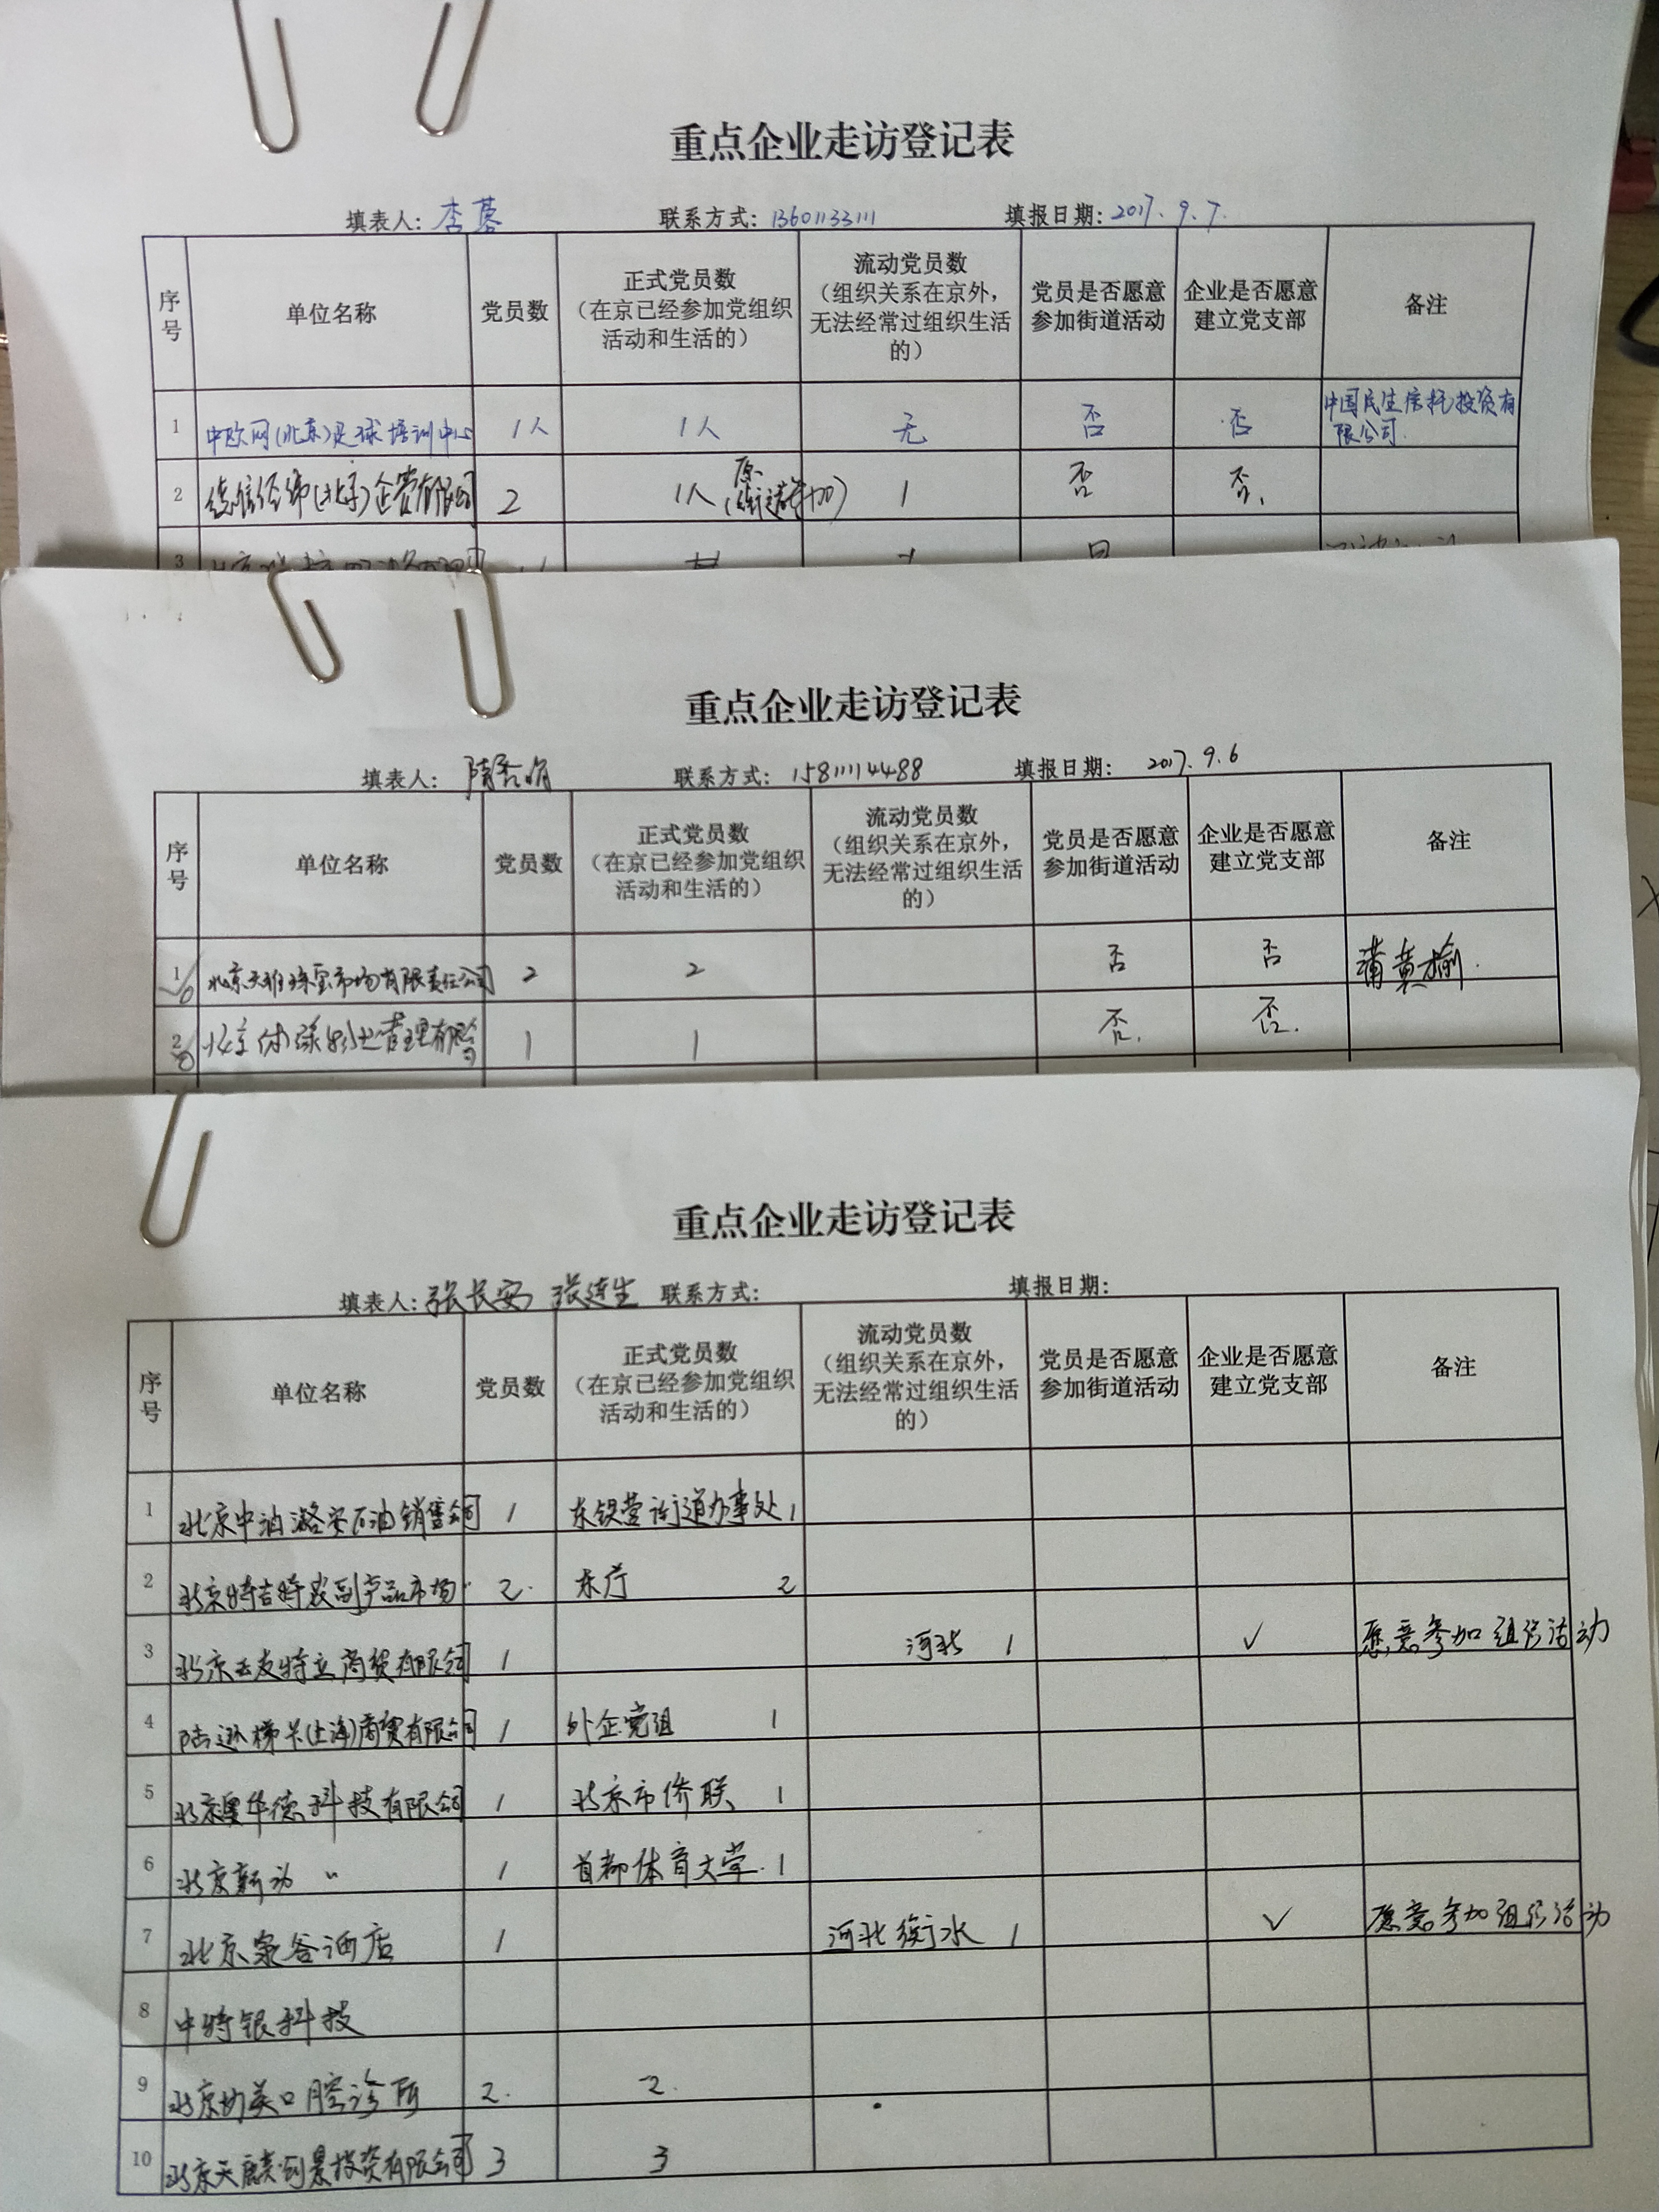 重点企业走访登记表
填表人: 李蓉 联系方式: 13601133111 填报日期: 2017.9.7.
序号 单位名称 党员数 正式党员数（在京已经参加党组织活动和生活的） 流动党员数（组织关系在京外，无法经常过组织生活的） 党员是否愿意参加街道活动 企业是否愿意建立党支部 备注
1 中欧网(北京)足球培训中心 1人 1人 无 否 否 中国民生信托投资有限公司.
2 (北京) 有限公司 2 1人 1 否 否.
3
重点企业走访登记表
填表人: 联系方式: 15811114488 填报日期: 2017.9.6
序号 单位名称 党员数 正式党员数（在京已经参加党组织活动和生活的） 流动党员数（组织关系在京外，无法经常过组织生活的） 党员是否愿意参加街道活动 企业是否愿意建立党支部 备注
1 北京天雅珠宝市场有限责任公司 2 2 否 否 蒲黄榆.
2 北京体 管理有限公司 1 1 否. 否.
重点企业走访登记表
填表人: 张长安 张连生 联系方式: 填报日期:
序号 单位名称 党员数 正式党员数（在京已经参加党组织活动和生活的） 流动党员数（组织关系在京外，无法经常过组织生活的） 党员是否愿意参加街道活动 企业是否愿意建立党支部 备注
1 北京中油潞安石油销售公司 1 东铁营街道办事处 1
2 北京特吉特农副产品市场 2. 东厅 2
3 北京 友特立商贸有限公司 1 河北 1 ✓ 愿意参加组织活动
4 梯卡(上海)商贸有限公司 1 外企党组 1
5 北京奥华德科技有限公司 1 北京市侨联 1
6 北京新动 〃 1 首都体育大学. 1
7 北京泉谷酒店 1 河北衡水 1 ✓ 愿意参加组织活动
8 中特银科技
9 北京均美口腔诊所 2. 2.
10 北京天麒 景投资有限公司 3 3